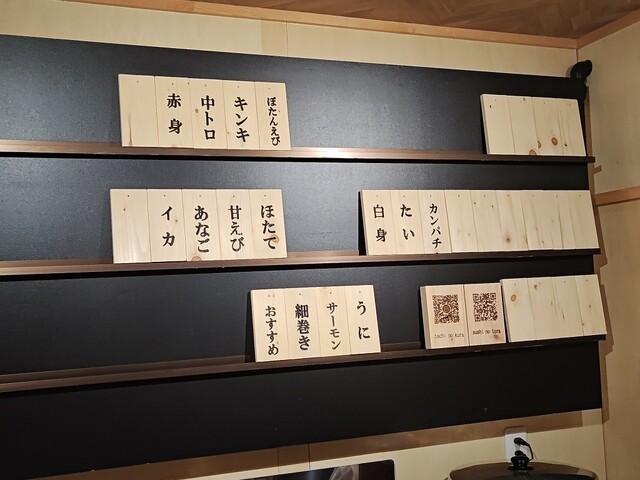 ぼたんえび
キンキ
中トロ
赤身
カンパチ
たい
白身
ほたて
甘えび
あなご
イカ
うに
サーモン
細巻き
おすすめ